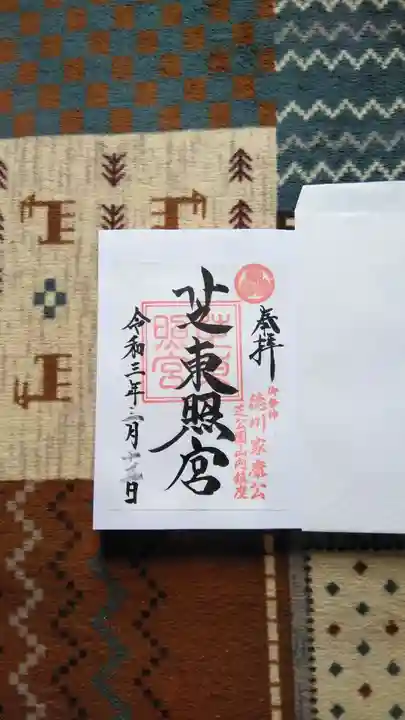 奉拝
御祭神
徳川家康公
芝公園山内鎮座
芝東照宮
令和三年三月十九日